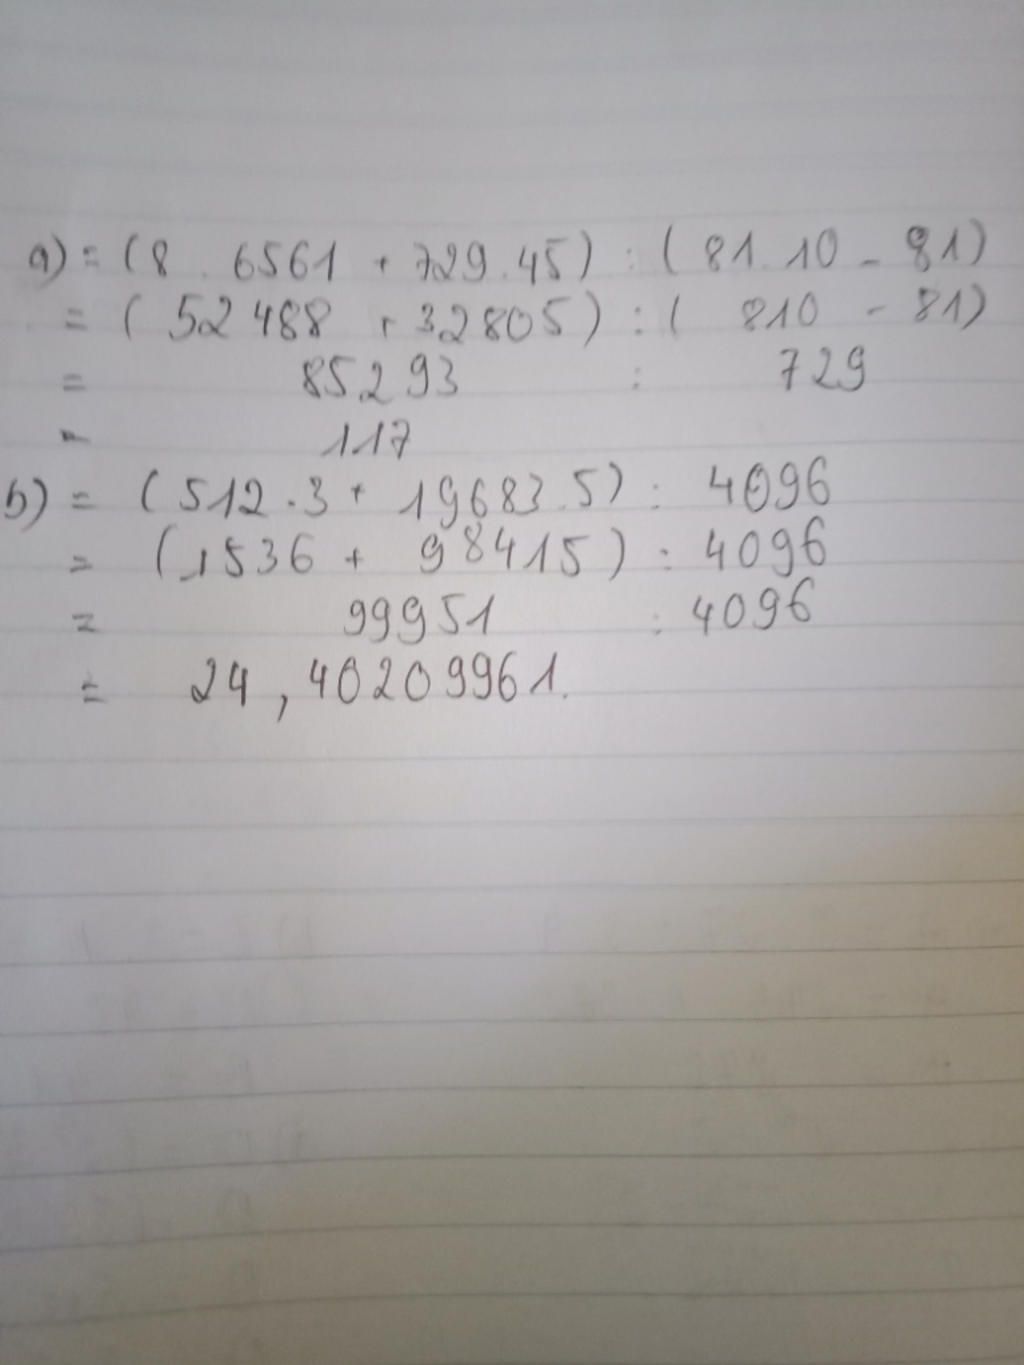 a) = (8 . 6561 + 729.45) : (81.10 - 81)
= (52488 + 32805) : (810 - 81)
= 85293 : 729
= 117
b) = (512.3 + 19683.5) : 4096
= (1536 + 98415) : 4096
= 99951 : 4096
= 24,40209961.